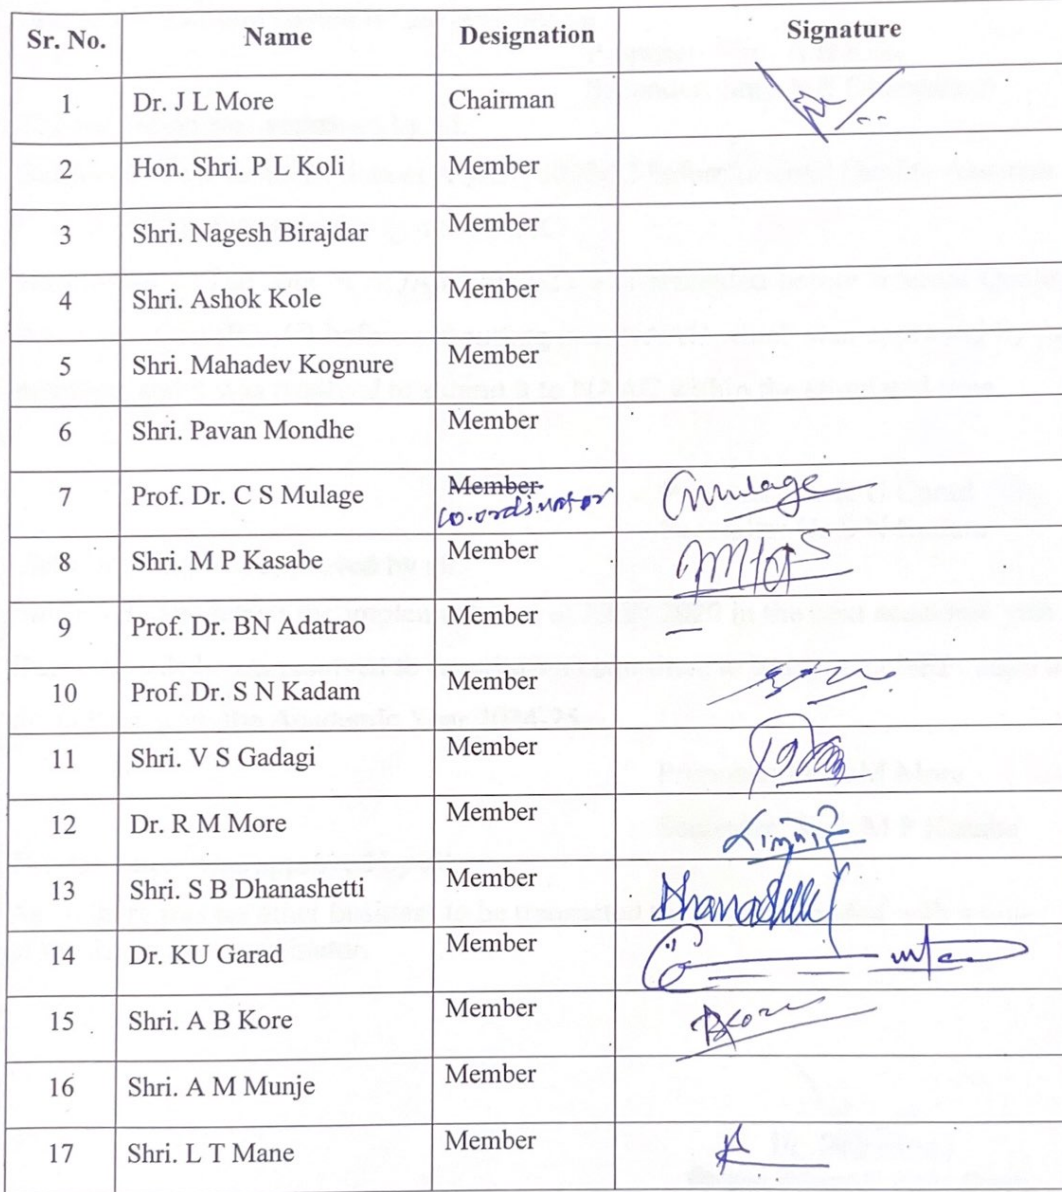 Sr. No. Name Designation Signature
1 Dr. J L More Chairman
2 Hon. Shri. P L Koli Member
3 Shri. Nagesh Birajdar Member
4 Shri. Ashok Kole Member
5 Shri. Mahadev Kognure Member
6 Shri. Pavan Mondhe Member
7 Prof. Dr. C S Mulage Member Co-ordinator Mulage
8 Shri. M P Kasabe Member
9 Prof. Dr. BN Adatrao Member —
10 Prof. Dr. S N Kadam Member
11 Shri. V S Gadagi Member
12 Dr. R M More Member
13 Shri. S B Dhanashetti Member
14 Dr. KU Garad Member
15 Shri. A B Kore Member Kore
16 Shri. A M Munje Member
17 Shri. L T Mane Member